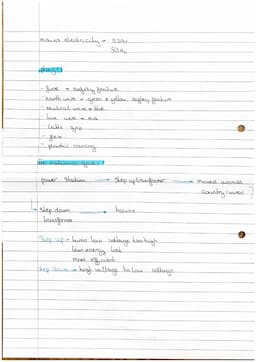 mains electricity = 230v
50Hz
plugs
- fuse = safety feature
- earth wire = green & yellow, safety feature
- neutral wire = blue
- live wire = red
- cable grip
- pins
- plastic casing
power station → step up transformer → moved across
country (wires)
↳ step down → house
transformer
Step up - turns low voltage to high
less energy lost
more efficient
step down → high voltage to low voltage